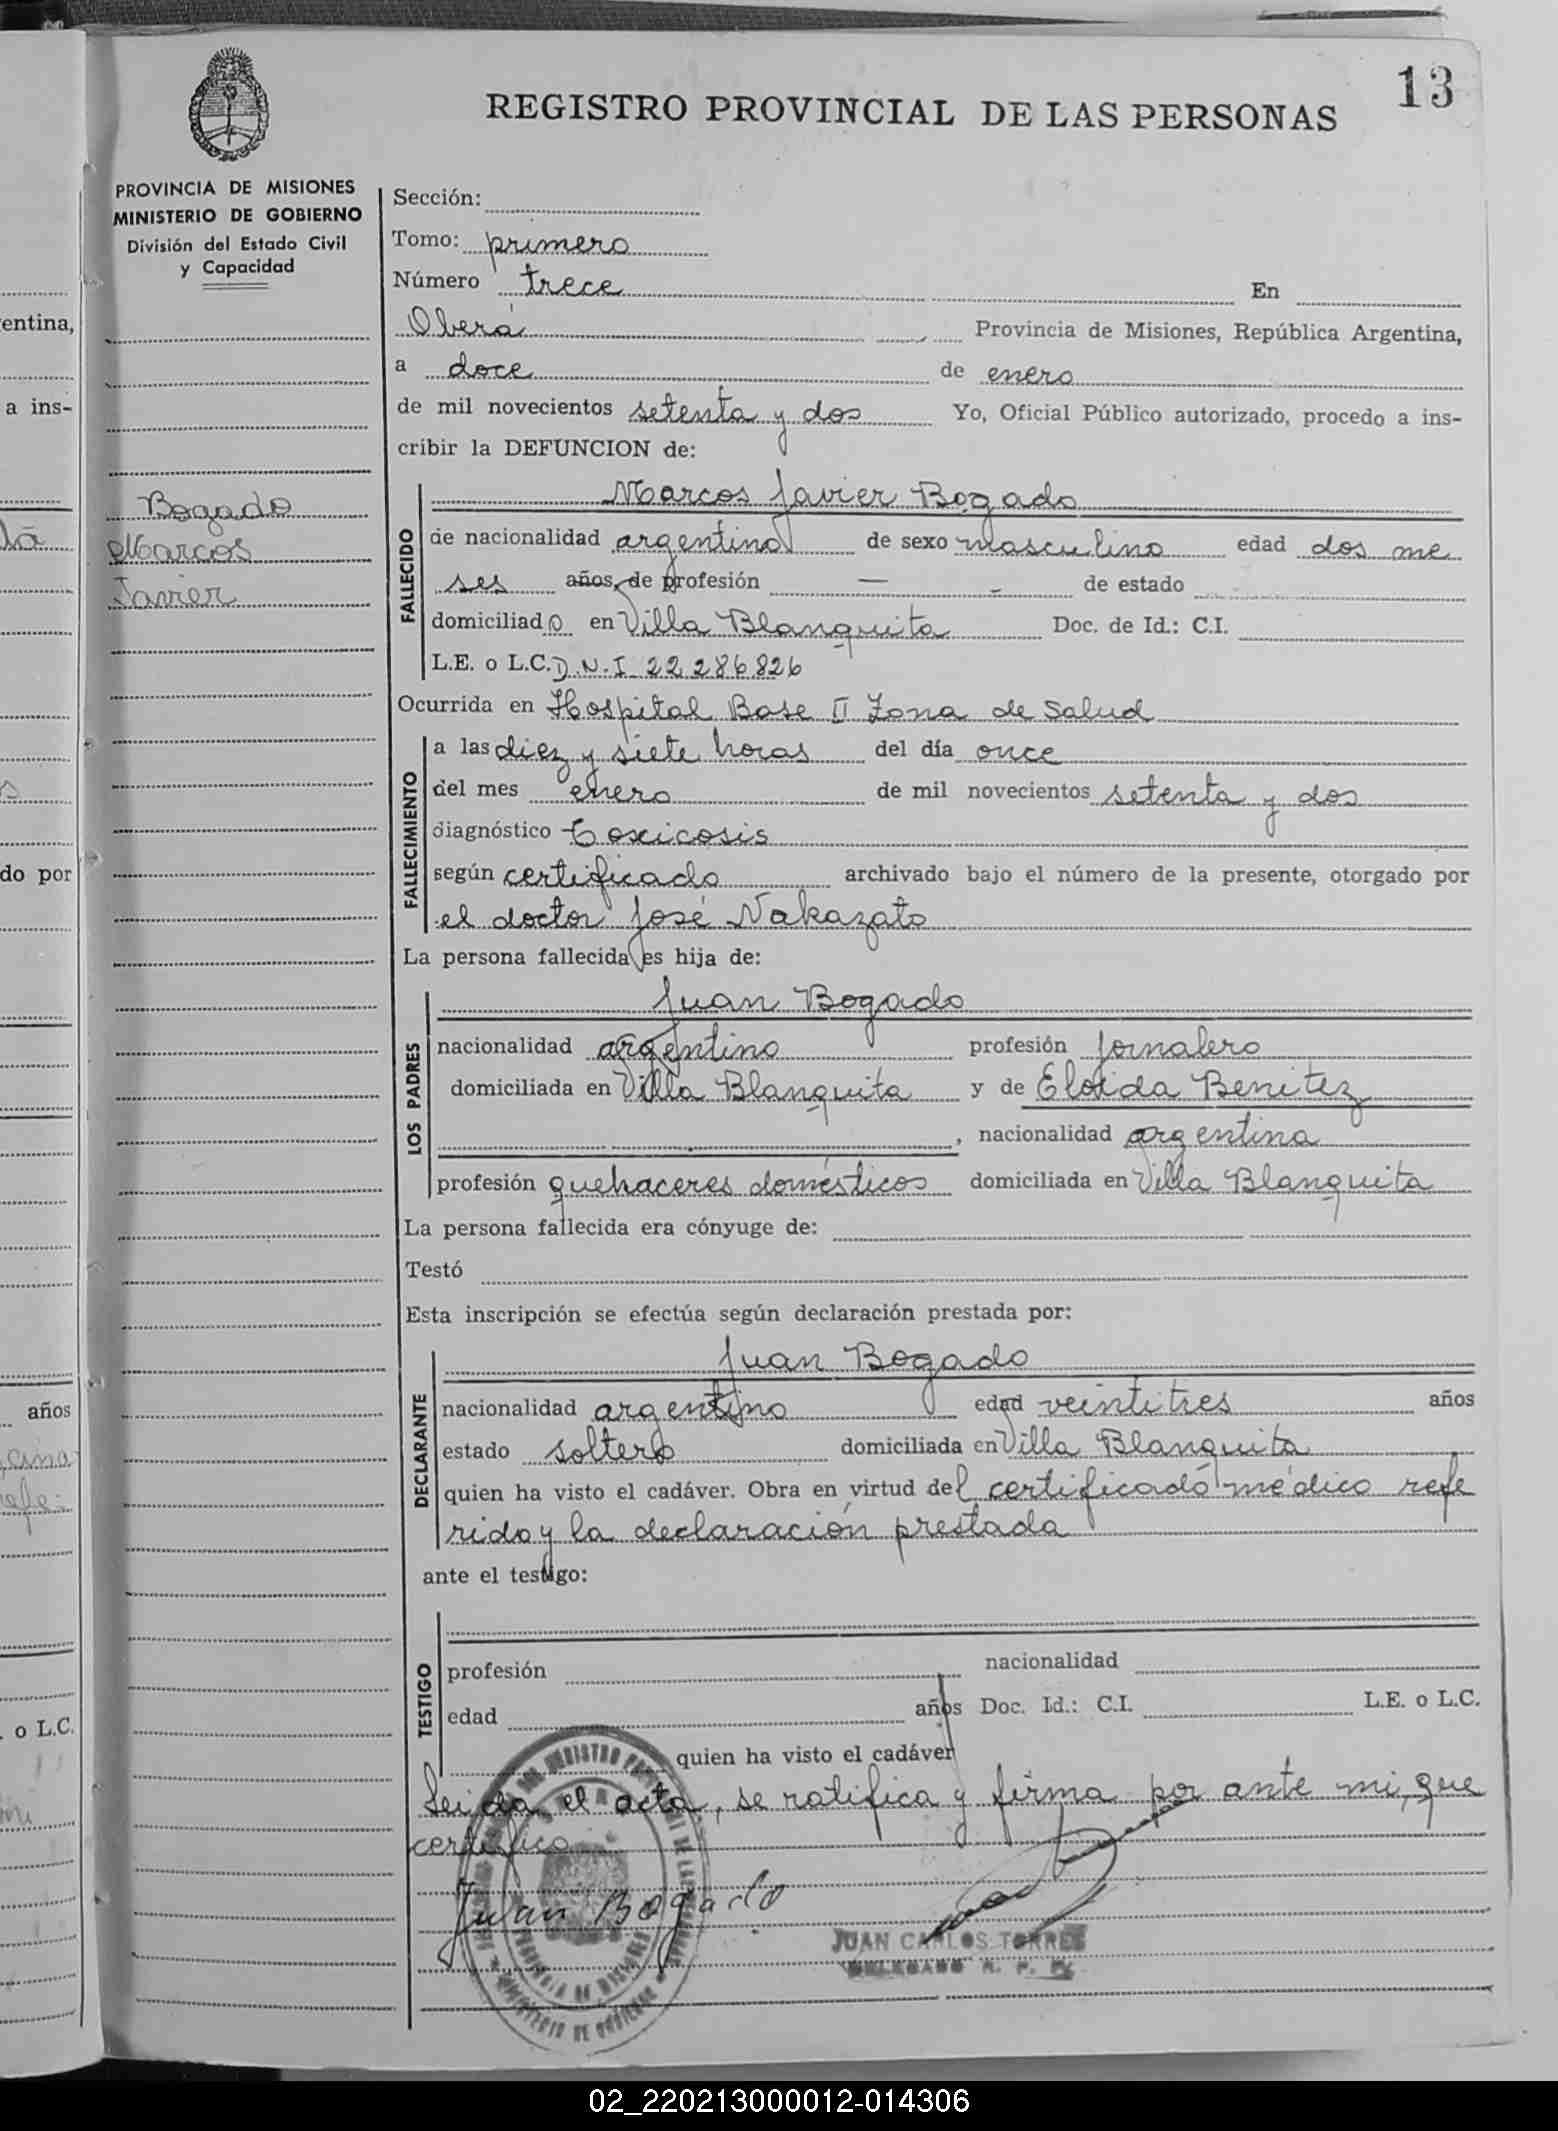 13
REGISTRO PROVINCIAL DE LAS PERSONAS
PROVINCIA DE MISIONES
MINISTERIO DE GOBIERNO
División del Estado Civil
y Capacidad
Bogado
Marcos
Javier
Sección:
Tomo: primero
Número trece En
Oberá Provincia de Misiones, República Argentina,
a doce de enero
de mil novecientos setenta y dos Yo, Oficial Público autorizado, procedo a ins-
cribir la DEFUNCION de:
FALLECIDO
Marcos Javier Bogado
de nacionalidad argentino de sexo masculino edad dos me
ses años, de profesión — de estado
domiciliado en Villa Blanquita Doc. de Id.: C.I.
L.E. o L.C. D.N.I 22.286.826
Ocurrida en Hospital Base II Zona de Salud
FALLECIMIENTO
a las diez y siete horas del día once
del mes enero de mil novecientos setenta y dos
diagnóstico Toxicosis
según certificado archivado bajo el número de la presente, otorgado por
el doctor José Nakazato
La persona fallecida es hija de:
LOS PADRES
Juan Bogado
nacionalidad argentino profesión jornalero
domiciliada en Villa Blanquita y de Eloida Benitez
, nacionalidad argentina
profesión quehaceres domésticos domiciliada en Villa Blanquita
La persona fallecida era cónyuge de:
Testó
Esta inscripción se efectúa según declaración prestada por:
DECLARANTE
Juan Bogado
nacionalidad argentino edad veintitres años
estado soltero domiciliada en Villa Blanquita
quien ha visto el cadáver. Obra en virtud del certificado médico refe
rido y la declaración prestada
ante el testigo:
TESTIGO
profesión nacionalidad
edad años Doc. Id.: C.I. L.E. o L.C.
quien ha visto el cadáver
Leida el acta, se ratifica y firma por ante mi, que
certifico
Juan Bogado
JUAN CARLOS TORRES
DELEGADO R. P. P.
entina,
a ins-
do por
años
o L.C.
02_220213000012-014306